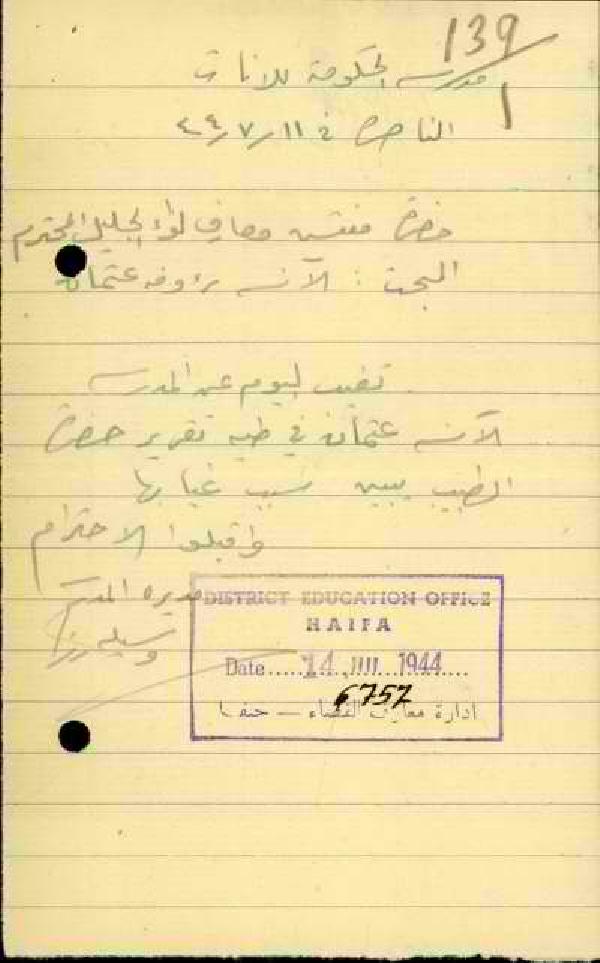 139
1
مدرسة الحكومة للاناث
الناصرة في ١١/٧/٤٤
حضرة مفتش معارف لواء الجليل المحترم
البحث : الآنسة رؤوفه عثمان
تغيب اليوم عن المدرسة
الآنسة عثمان في طيه تقرير حضرة
الطبيب يبين سبب غيابها
واقبلوا الاحترام
مديرة المدرسة
DISTRICT EDUCATION OFFICE
HAIFA
Date 14 JUL 1944
6757
ادارة معارف القضاء — حيفا